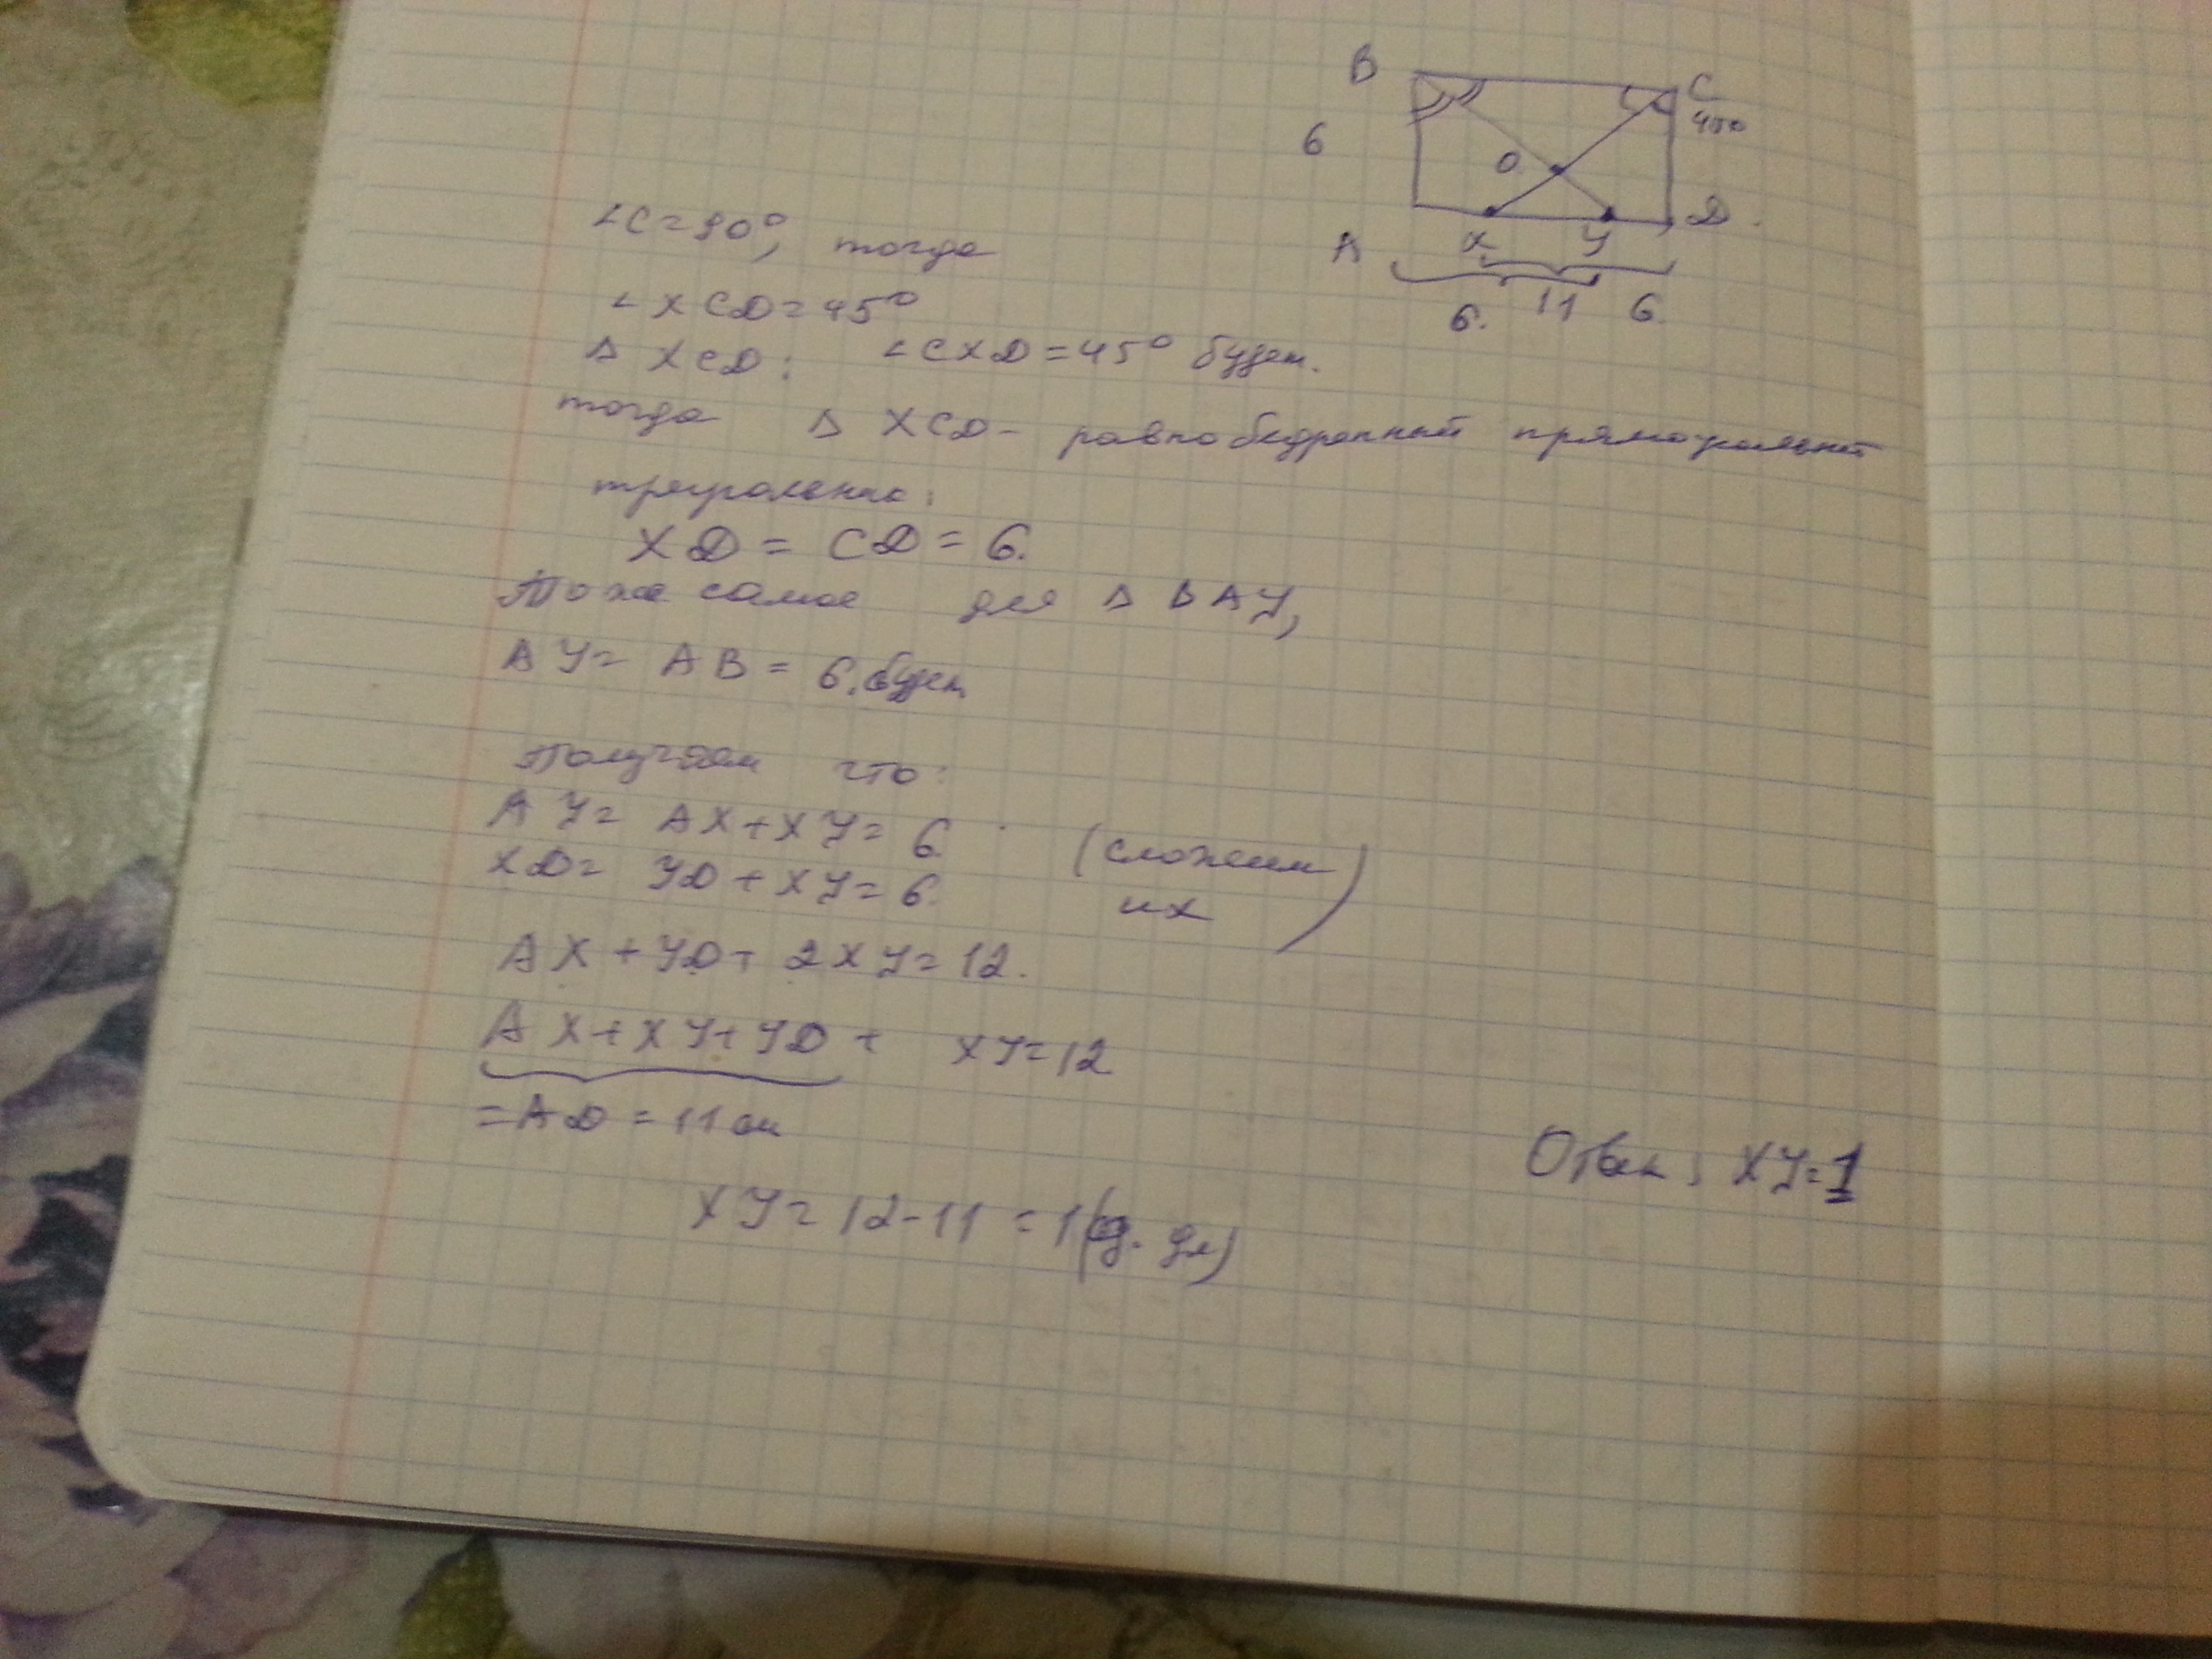 B
C
6
45°
O
D.
A
X
У
6.
11
6
∠C=90°, тогда
∠XCD=45°
Δ XCD: ∠CXD=45° будет.
тогда Δ XCD - равнобедренный прямоугольный
треугольник:
XD = CD = 6.
Тоже самое для Δ BAY,
AY= AB = 6. будет
Получаем что:
AY= AX+XY= 6
XD= YD+XY= 6 (сложим
их)
AX+YD+2XY=12.
AX+XY+YD + XY=12
=AD=11см
Ответ: XY=1
XY=12-11=1(ед. дл)